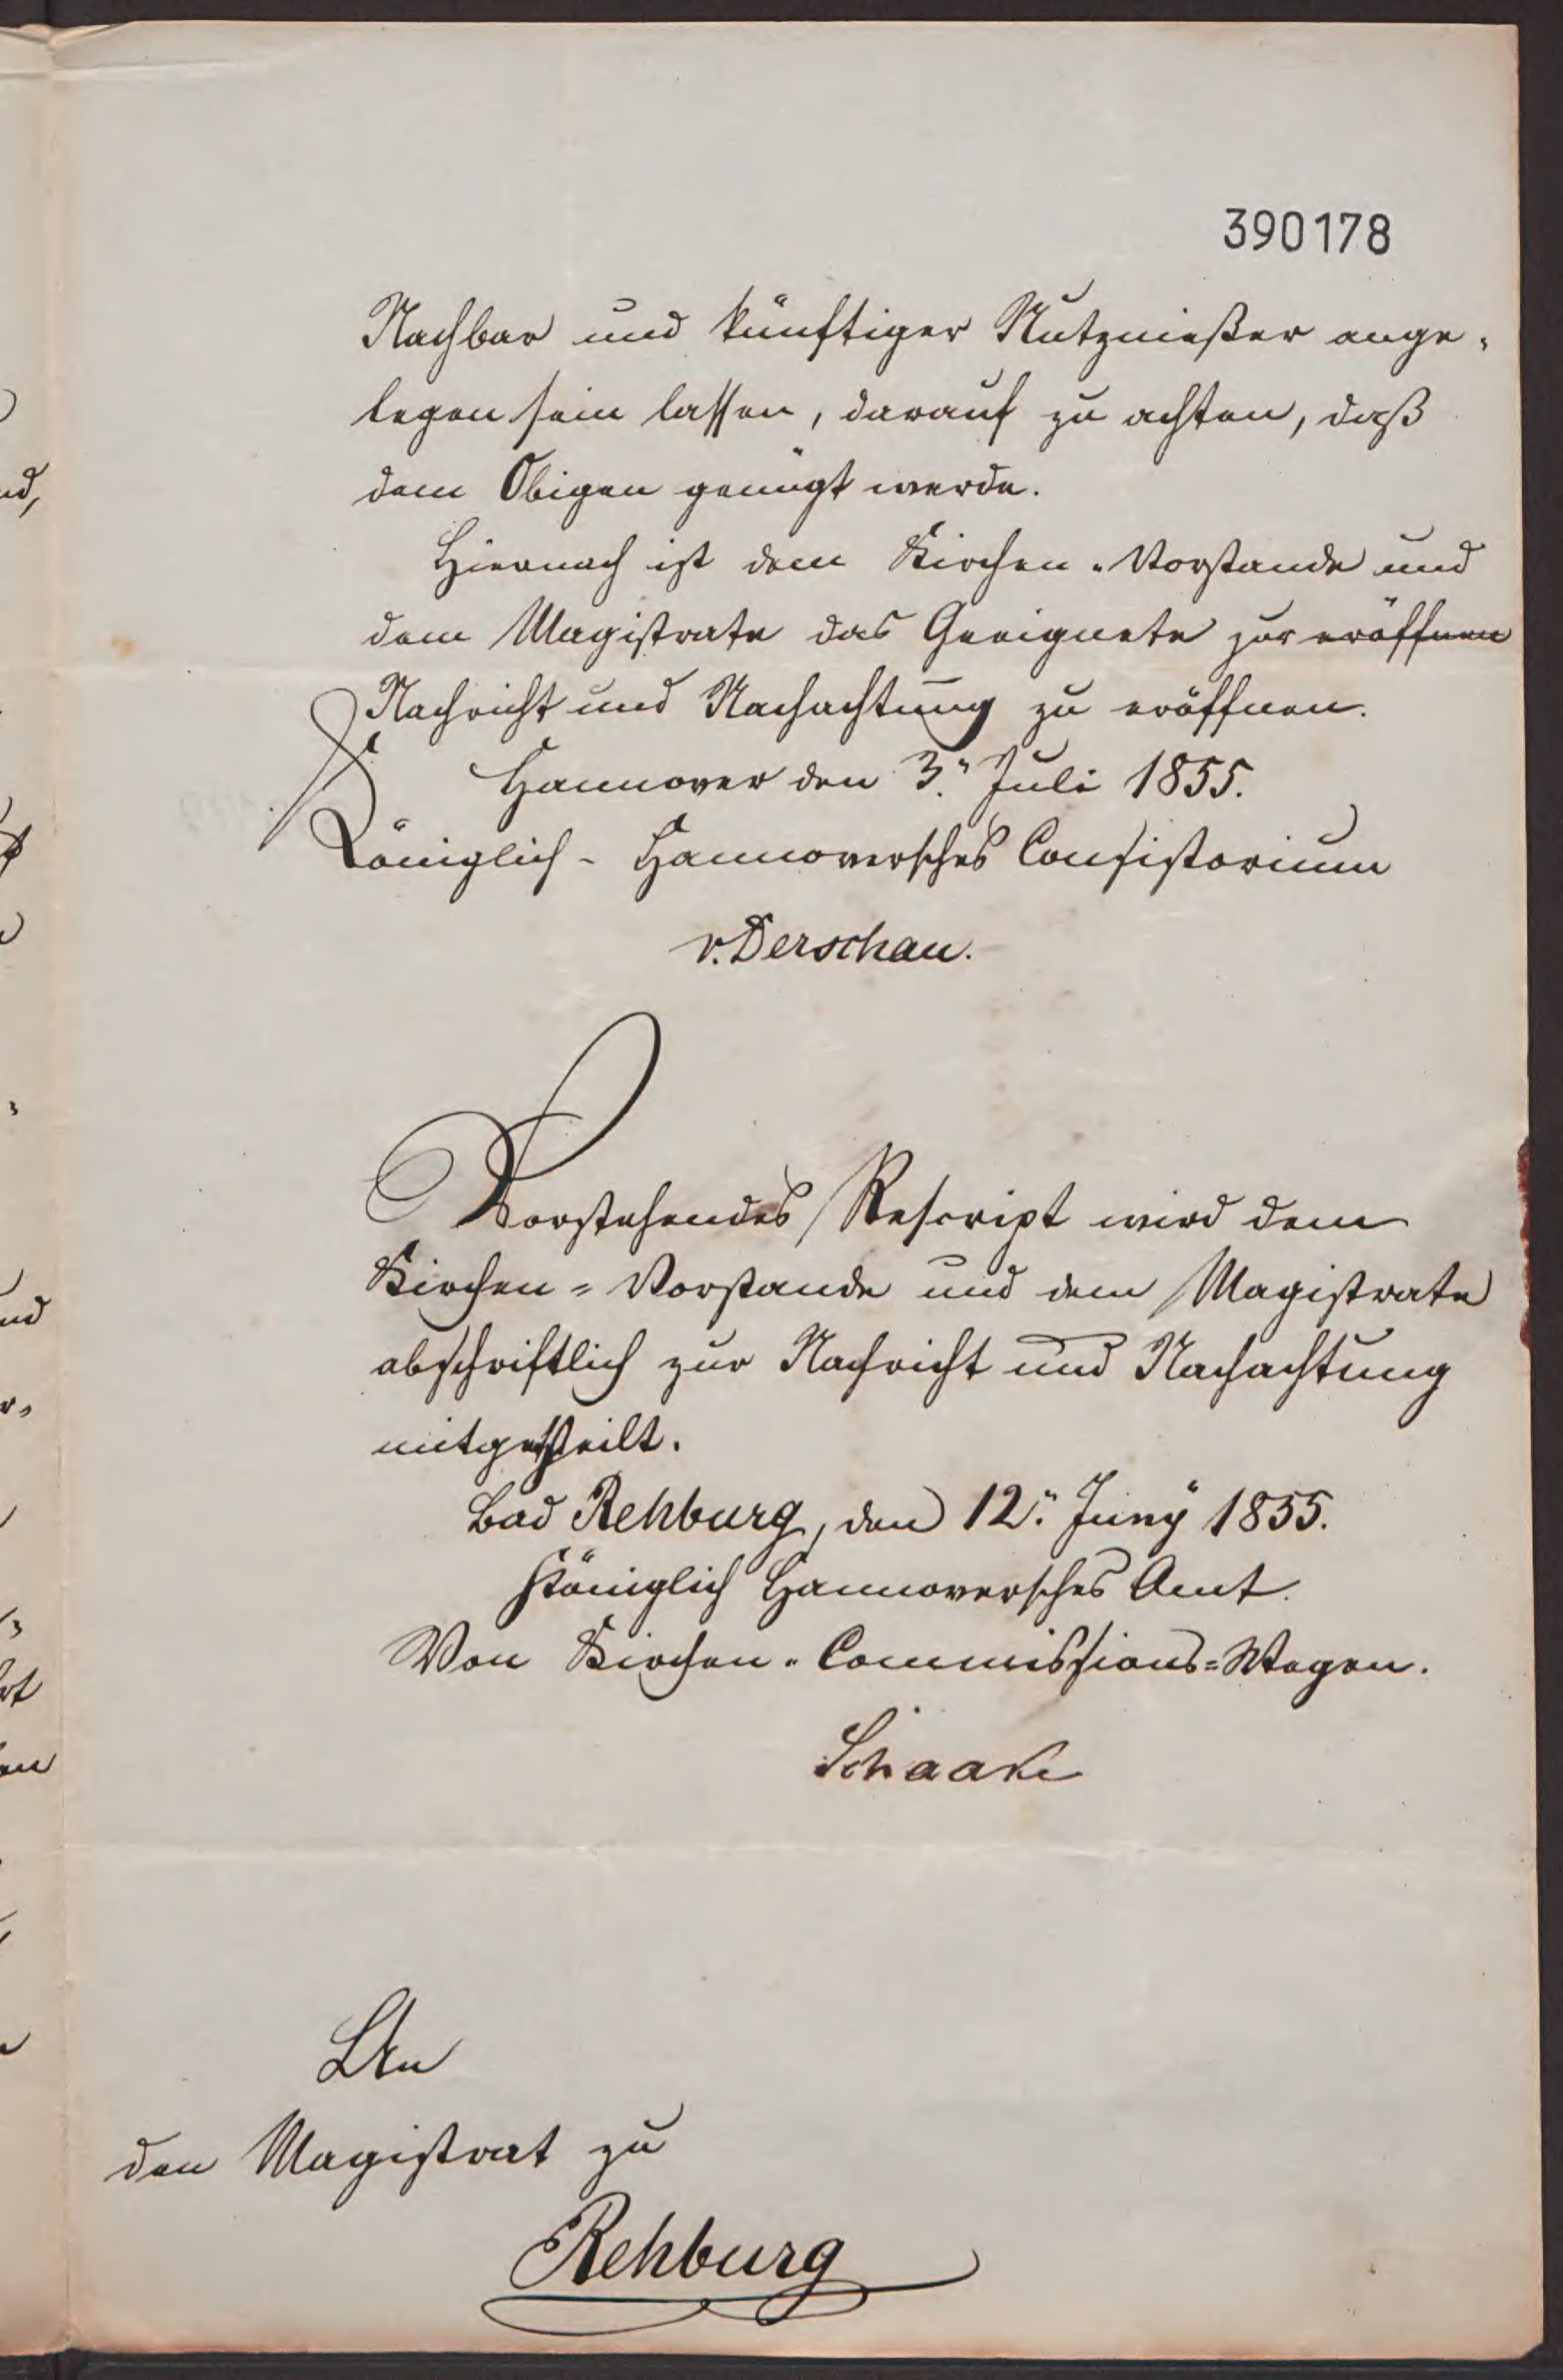 390178
Nachbar und künftiger Nutznießer ange-
legen sein lassen, darauf zu achten, daß
dem Obigen genügt werde.
Hiernach ist dem Kirchen-Vorstande und
dem Magistrate das Geeignete zur eröffnen
Nachricht und Nachachtung zu eröffnen.
Hannover den 3. Juli 1855.
Königlich-Hannoversches Consistorium
v. Derschau.
Vorstehendes Rescript wird dem
Kirchen-Vorstande und dem Magistrate
abschriftlich zur Nachricht und Nachachtung
mitgetheilt.
Bad Rehburg, den 12. Juny 1855.
Königlich Hannoversches Amt.
Von Kirchen-Commissions-Wegen.
Schaake
An
den Magistrat zu
Rehburg